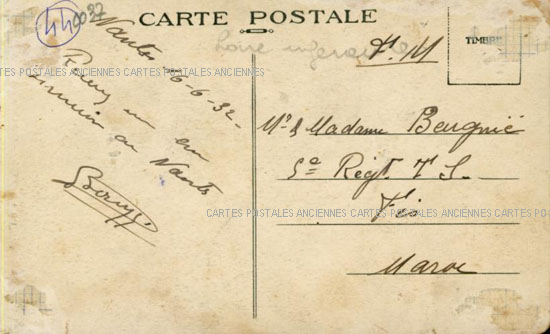 44
0022
CARTE POSTALE
Loire inférieure
F. M
TIMBRE
Nantes 26-6-32-
Recevez un bon
souvenir de Nantes
CARTES POSTALES ANCIENNES CARTES POSTALES ANCIENNES CARTES POSTALES ANCIENNES
Mr & Madame
5e Régt. T S.
Fès
Maroc
CARTES POSTALES ANCIENNES CARTES POSTALES ANCIENNES CARTES POSTALES